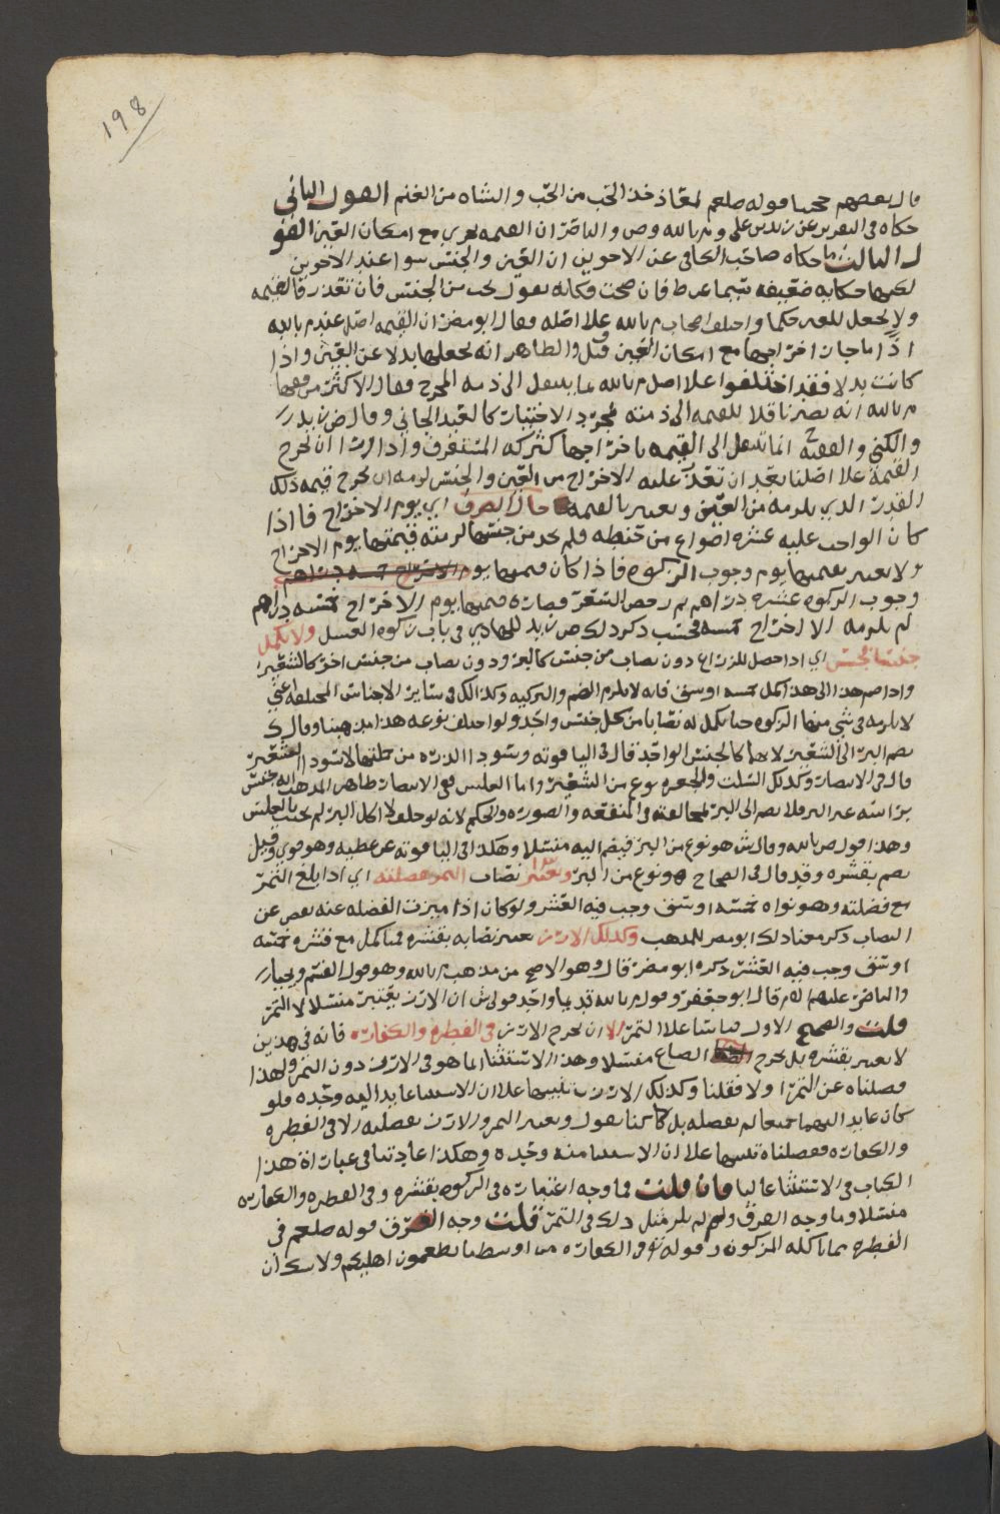 198
قال بعضهم محتجا بقوله صلعم لمعاذ خذ الحب من الحب والشاه من الغنم القول الثاني
حكاه في التقرير عن زيد بن علي وم بالله وص والناصر ان القيمه تجزي مع امكان العين القو
ل الثالث ما حكاه صاحب الكافي عن الاخوين ان العين والجنس سوا عند الاخوين
لكنها حكايه ضعيفه فان صحت فكانه يقول يجب من الجنس فان تعذر فالقيمه
ولا يجعل للعين حكما واختلف اصحاب م بالله على اصله فقال ابو مضر ان القيمه اصل عند م بالله
اذا ما جاز اخراجها مع امكان العين وقيل والظاهر انه يجعلها بدلا عن العين واذا
كانت بدلا فقد اختلفوا علا اصل م بالله بما ينتقل الى ذمه المخرج فقال الاكثر من
م بالله انه يصير ناقلا للقيمه الى ذمته بمجرد الاختيار كالعبد الجاني وقال ض زيد
والكني والفقيه ح انما تنتقل الى القيمه باخراجها كتركه المستغرق واذا اردنا ان نخرج
القيمة علا اصلنا بعد ان تعذر عليه الاخراج من العين والجنس لزمه ان يخرج قيمه ذلك
القدر الذي يلزمه من العين ويعتبر بالقيمه حال الصرف اي يوم الاخراج فاذا
كان الواجب عليه عشره اصواع من حنطه فلم يجد من جنسها لزمته قيمتها يوم الاخراج
ولا يعتبر بقيمتها يوم وجوب الزكوه فاذا كان قيمتها يوم الاخراج خمسه دراهم
وجوب الزكوه عشره دراهم ثم رخص السعر فصارت قيمتها يوم الاخراج خمسه دراهم
لم يلزمه الا اخراج خمسه فحسب ذكر ذلك ض زيد للهادي في باب زكوه العسل ولا يكمل
جنسا بجنس اي اذا حصل للزراع دون نصاب من جنس كالبر ودون نصاب من جنس اخر كالشعير
واذا ضم هذا الى هذا كمل خمسه اوسق فانه لا يلزم الضم والتزكيه وكذلك في سائر الاجناس المختلفه اعني
لا يلزمه في شي منها الزكوه حتا يكمل له نصابا من كل جنس واحد ولو اختلف نوعه هذا مذهبنا وقال ك
يضم البر الى الشعير لانهما كالجنس الواحد قال في الياقوته وسود الذره من جنسها لا سود الشعير
قال في الانتصار وكذلك السلت نوع من الشعير واما العلس ففي الانتصار ظاهر المذهب انه جنس
براسه غير البر فلا يضم الى البر لمخالفته في المنفعه والصوره والحكم لانه لو حلف لا اكل البر لم يحنث بالعلس
وهذا قول ص بالله وقال ش هو نوع من البر فيضم اليه منسلا وهكذا في الياقوته عن عطيه وهو قوي وقيل
يضم بقشره وقد قال في الصحاح هو نوع من البر ويعتبر نصاب التمر بفضلته اي اذا بلغ التمر
مع فضلته وهو نواه خمسه اوسق وجب فيه العشر ولو كان اذا ميزت الفضله عنه نقص عن
النصاب ذكر معنا ذلك ابو مضر للمذهب وكذلك الارز يعتبر نصابه بقشره فمتا كمل مع قشره خمسه
اوسق وجب فيه العشر ذكره ابو مضر قال وهو الاصح من مذهب م بالله وهو قول القسم ويحيا
والناصر عليهم السلم قال ابو جعفر وقول م بالله قديما واحد قولي ش ان الارز يعتبر منسلا لا التمر
قلت والصحيح الاول قياسا علا التمر الا ان يخرج الارز في الفطره والكفاره فانه في هذين
لا يعتبر بقشره بل يخرج الصاع منسلا وهذا الاستثنا انما هو في الارز دون التمر ولهذا
فصلناه عن التمر اولا فقلنا وكذلك الارز تنبيها علا ان الاستثنا عايد اليه وحده فلو
كان عايدا اليهما جميعا لم نفصله بل كنا نقول ويعتبر التمر والارز بفضلته الا في الفطره
والكفاره ففصلناه تنبيها علا ان الاستثنا منه وحده وهكذا عادتنا في عبارة هذا
الكتاب في الاستثنا غالبا فان قلت فما وجه اعتباره في الزكوه بقشره وفي الفطره والكفاره
منسلا وما وجه الفرق ولم لم يلزم مثل ذلك في التمر قلت وجه الفرق قوله صلعم في
الفطره مما تاكله المزكون وقوله تعالى في الكفاره من اوسط ما تطعمون اهليكم ولا شك ان